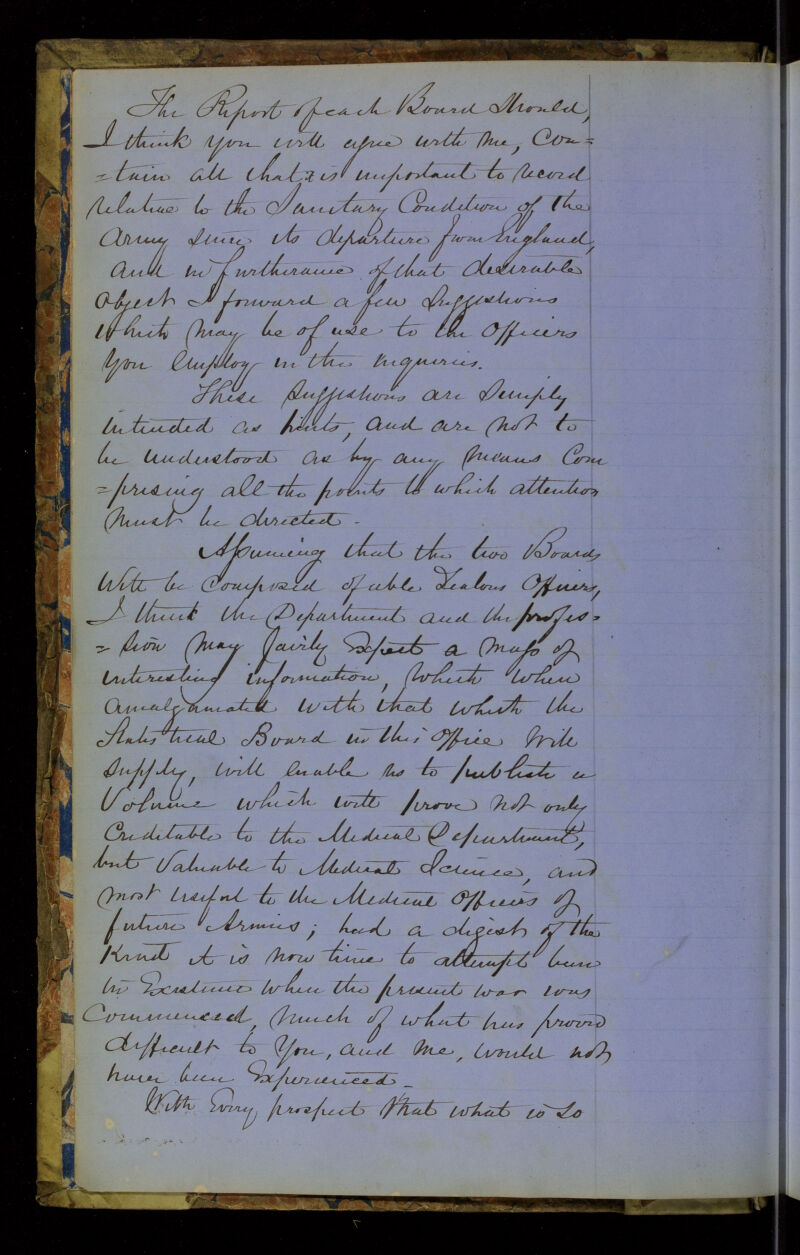 The Report of each Board Should,
I think you will agree with me, Con=
=tain all that is important to record
relative to the Sanitary Condition of the
Army since its departure from England,
and in furtherance of that desirable
object I forward a few Suggestions
which may be of use to the Officers
you employ in the inquiries.
These suggestions are Simply
intended as hints, and are not to
be understood as by any means Com
=prising all the points to which attention
must be directed -
Assuming that the two Boards
will be composed of able Zealous Officers,
I think the Department and the profes=
=sion may fairly Expect a mass of
interesting information, which when
amalgamated with that which the
Statistical Board in this Office will
supply, will enable us to publish a
Volume which will prove not only
Creditable to the Medical Department,
but Valuable to Medical Science, and
most useful to the Medical Officers of
future Armies; had a digest of the
Kind it is now time to attempt been
in Existence when the present war was
Commenced, much of what has proved
difficult to You, and me, would not
have been Experienced -
With Every prospect that what is so